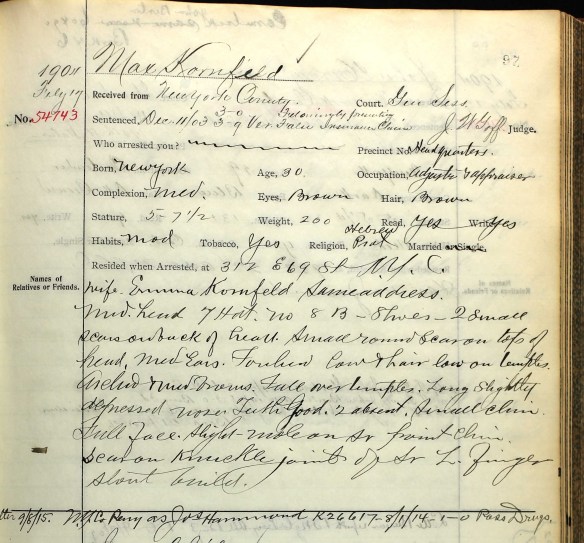 92
1904 Max Kornfeld
Feby 17
Received from New York County. Court, Gen Sess.
No. 54743
Sentenced, Dec 11/03 3-0 3-9 Ver. False Insurance Claim J W Goff Judge.
Who arrested you? Precinct No. Headquarters.
Born, New York Age, 30. Occupation, Adjuster & appraiser
Complexion, Med. Eyes, Brown Hair, Brown
Stature, 5-7 1/2 Weight, 200 Read, Yes Write Yes
Habits, Mod Tobacco, Yes Religion, Hebrew Prot Married or Single.
Resided when Arrested, at 312 E 69 St N.Y. C.
Names of
Relatives or Friends.
wife. Emma Kornfeld Same address.
Med. head 7 Hat. no 8 B - Shoes - 2 Small
scars on back of head. Small round Scar on top of
head, Med Ears. Forehead Low & hair low on temples.
Arched & med brows. Full over temples. Long Slightly
depressed nose. Teeth Good. 2 absent. Small chin.
Full Face. Slight mole on front Chin.
Scar on Knuckle joint of L. Finger
Stout build.
9/8/15. NY Co Peny as Jos Hammond K26617-8/1/14 1-0 Poss Drugs.